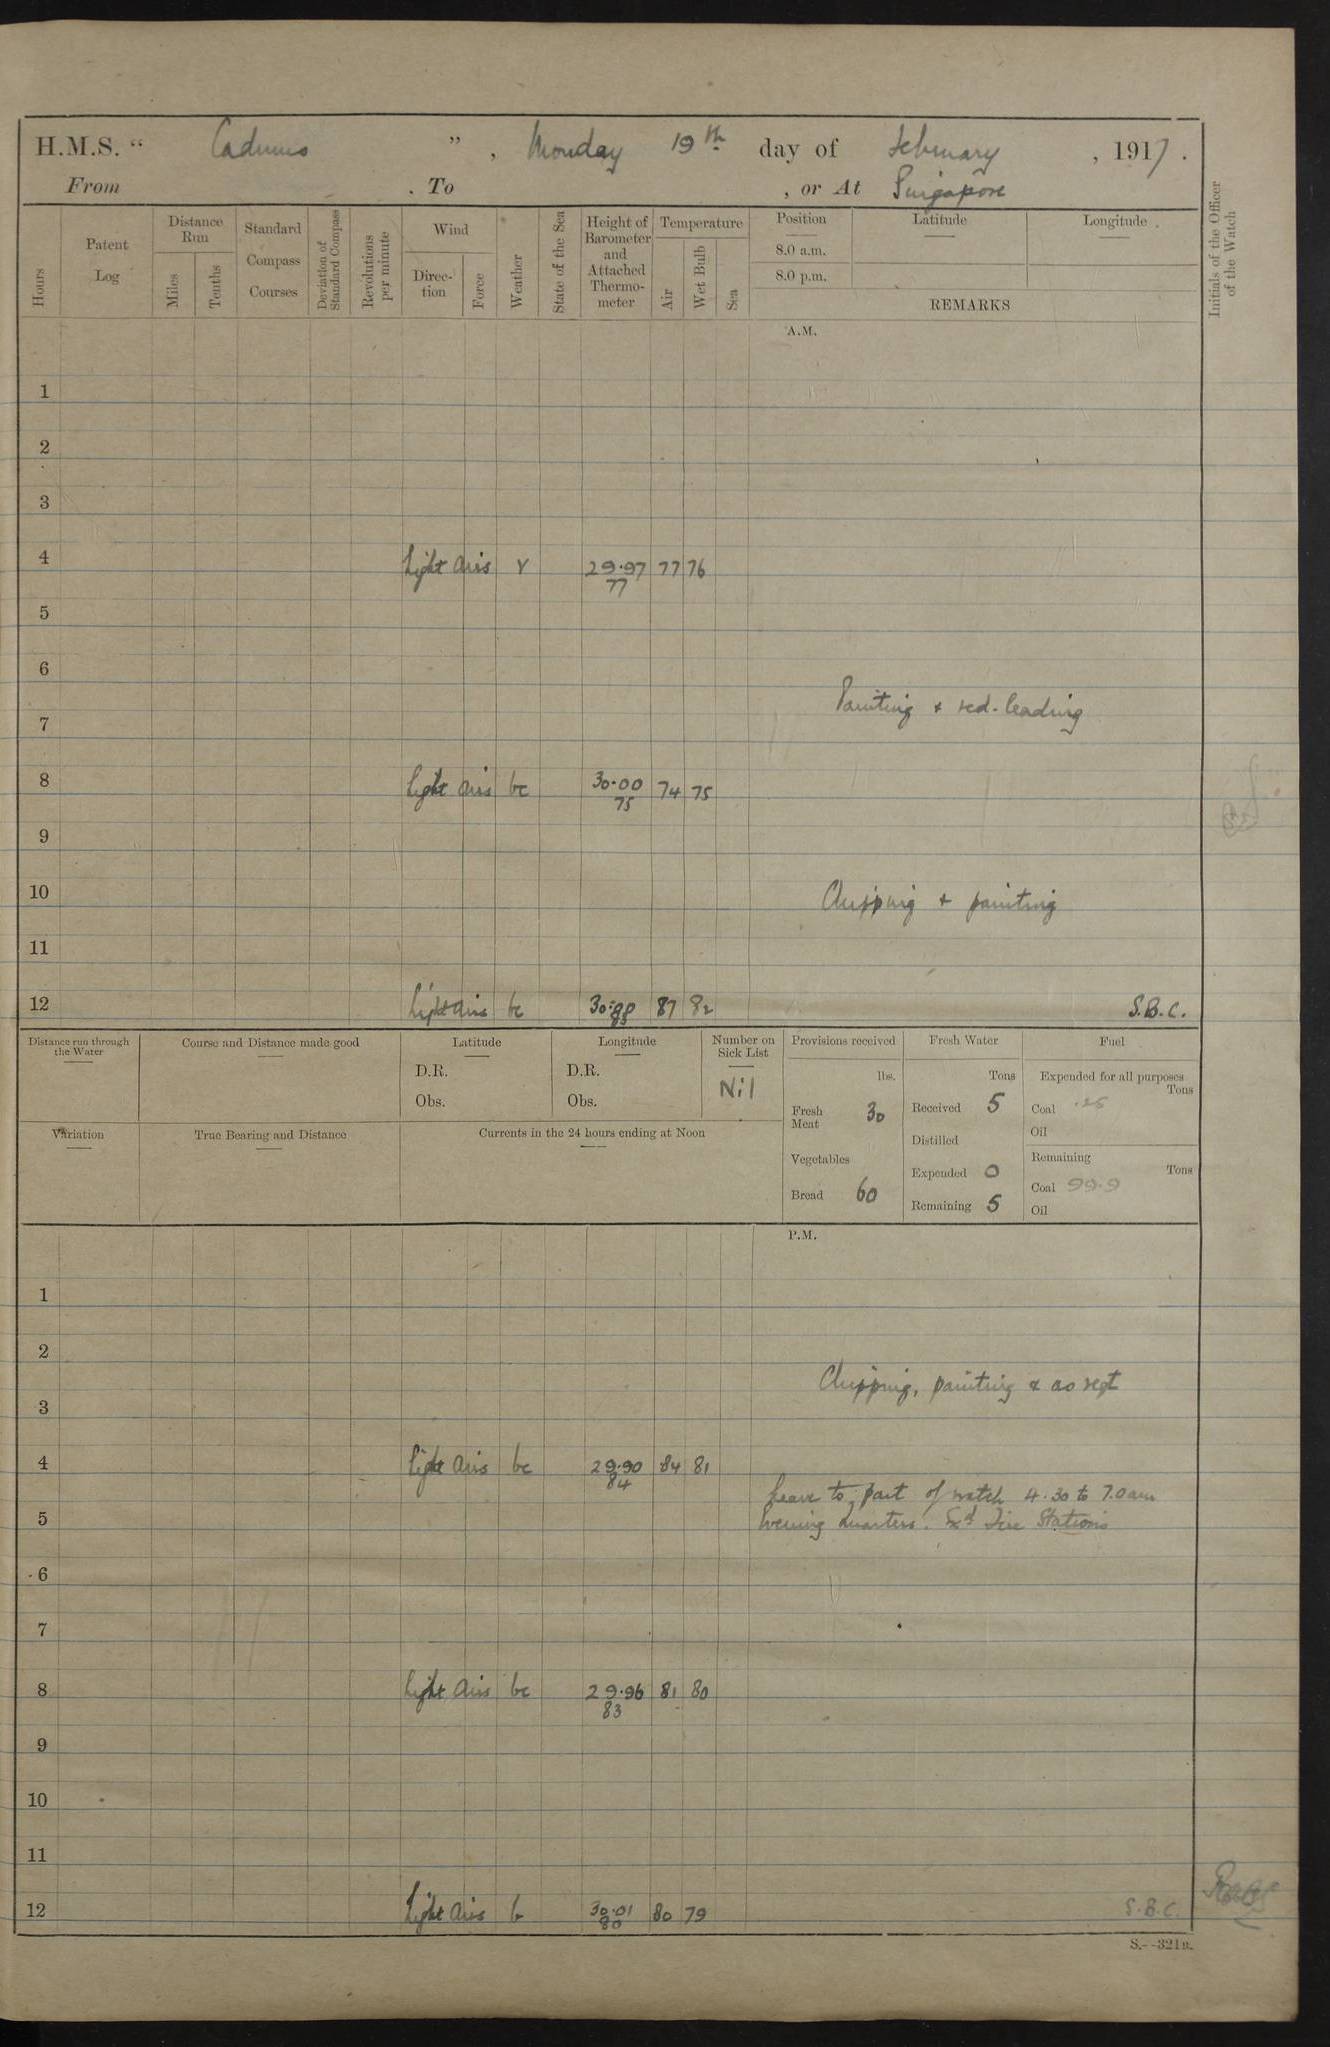 H.M.S. “ Cadmus ” , Monday 19th day of February , 1917 .
From . To , or At Singapore
Hours
Patent Log
Distance Run
Miles
Tenths
Standard Compass Courses
Deviation of Standard Compass
Revolutions per minute
Wind
Direction
Force
Weather
State of the Sea
Height of Barometer and Attached Thermometer
Temperature
Air
Wet Bulb
Sea
Position
8.0 a.m.
8.0 p.m.
Latitude
Longitude
REMARKS
Initials of the Officer of the Watch
A.M.
1
2
3
4 Light airs r 29.97 77 77 76
5
6
Painting & red-leading
7
8 Light airs bc 30.00 75 74 75
9
10 Chipping & painting
11
12 Light airs bc 87 82 S.B.C.
Distance run through the Water
Course and Distance made good
Latitude
D.R.
Obs.
Longitude
D.R.
Obs.
Number on Sick List
Nil
Provisions received
lbs.
Fresh Meat 30
Vegetables
Bread 60
Fresh Water
Tons
Received 5
Distilled
Expended 0
Remaining 5
Fuel
Expended for all purposes
Tons
Coal .25
Oil
Remaining
Tons
Coal 99.9
Oil
Variation
True Bearing and Distance
Currents in the 24 hours ending at Noon
P.M.
1
2
Chipping, painting & as reqt
3
4 Light airs bc 29.90 84 84 81
Leave to part of watch 4.30 to 7.0 am
5 Evening Quarters. Exd Fire Stations
6
7
8 Light airs bc 29.96 83 81 80
9
10
11
12 Light airs b 30.01 80 80 79 S.B.C.
S.--321B.